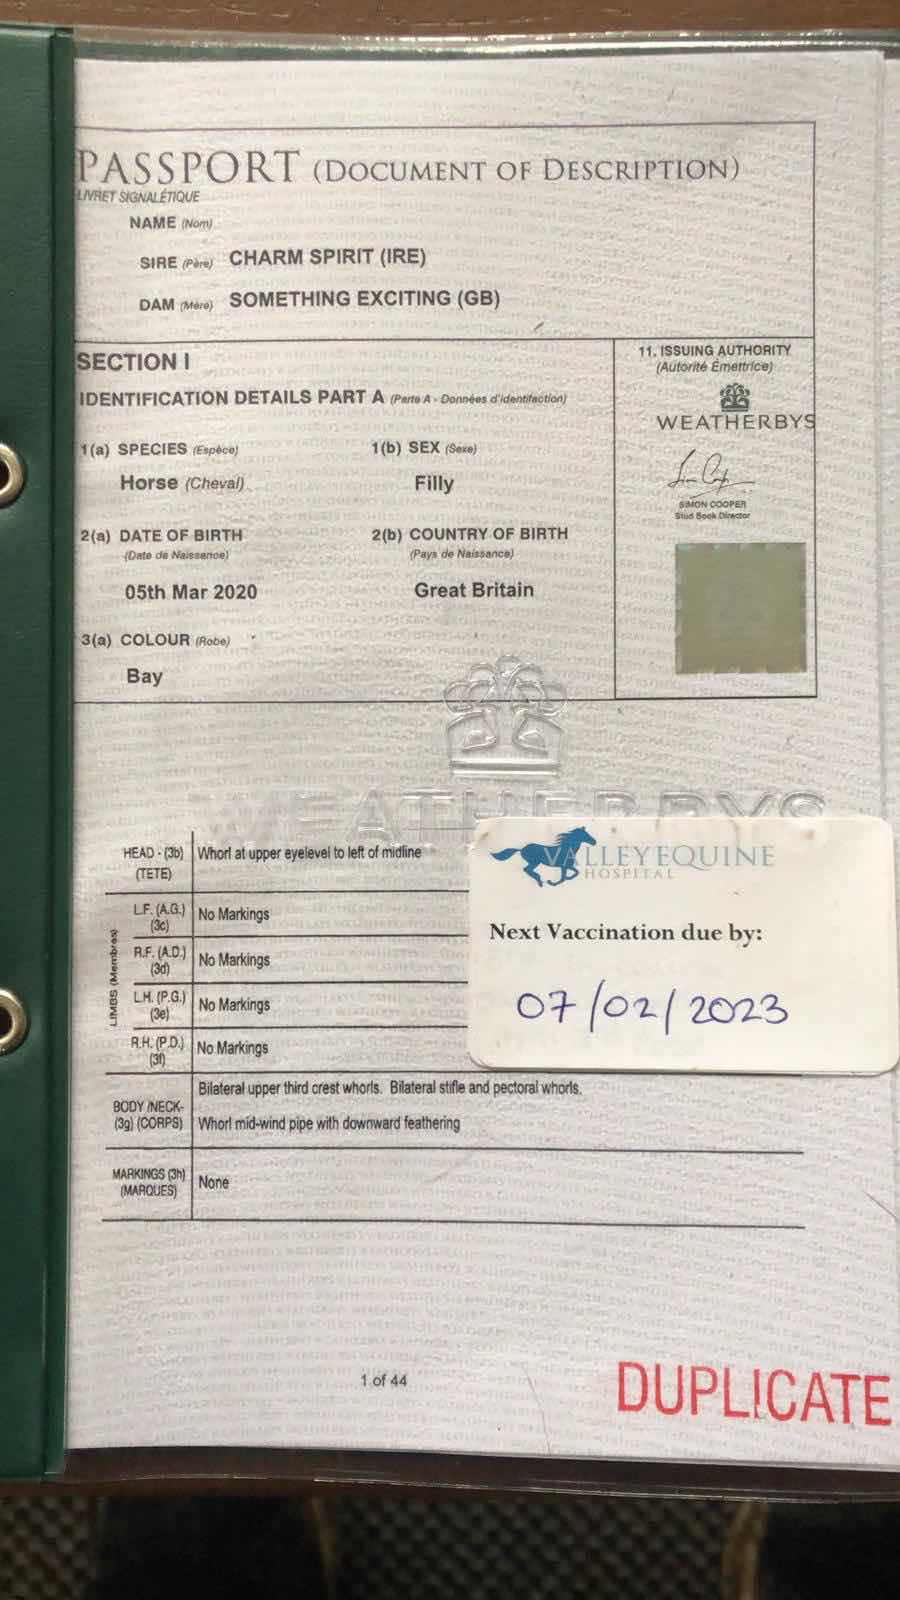 PASSPORT (DOCUMENT OF DESCRIPTION)
LIVRET SIGNALÉTIQUE
NAME (Nom)
SIRE (Père) CHARM SPIRIT (IRE)
DAM (Mère) SOMETHING EXCITING (GB)
SECTION I
IDENTIFICATION DETAILS PART A (Parte A - Données d'identifaction)
1(a) SPECIES (Espèce) 1(b) SEX (Sexe)
Horse (Cheval) Filly
2(a) DATE OF BIRTH 2(b) COUNTRY OF BIRTH
(Date de Naissance) (Pays de Naissance)
05th Mar 2020 Great Britain
3(a) COLOUR (Robe)
Bay
11. ISSUING AUTHORITY
(Autorité Émettrice)
WEATHERBYS
SIMON COOPER
Stud Book Director
WEATHERBYS
HEAD - (3b) Whorl at upper eyelevel to left of midline
(TETE)
LIMBS (Membres)
L.F. (A.G.) No Markings
(3c)
R.F. (A.D.) No Markings
(3d)
L.H. (P.G.) No Markings
(3e)
R.H. (P.D.) No Markings
(3f)
BODY /NECK- Bilateral upper third crest whorls. Bilateral stifle and pectoral whorls.
(3g) (CORPS) Whorl mid-wind pipe with downward feathering
MARKINGS (3h) None
(MARQUES)
VALLEY EQUINE
HOSPITAL
Next Vaccination due by:
07/02/2023
1 of 44
DUPLICATE